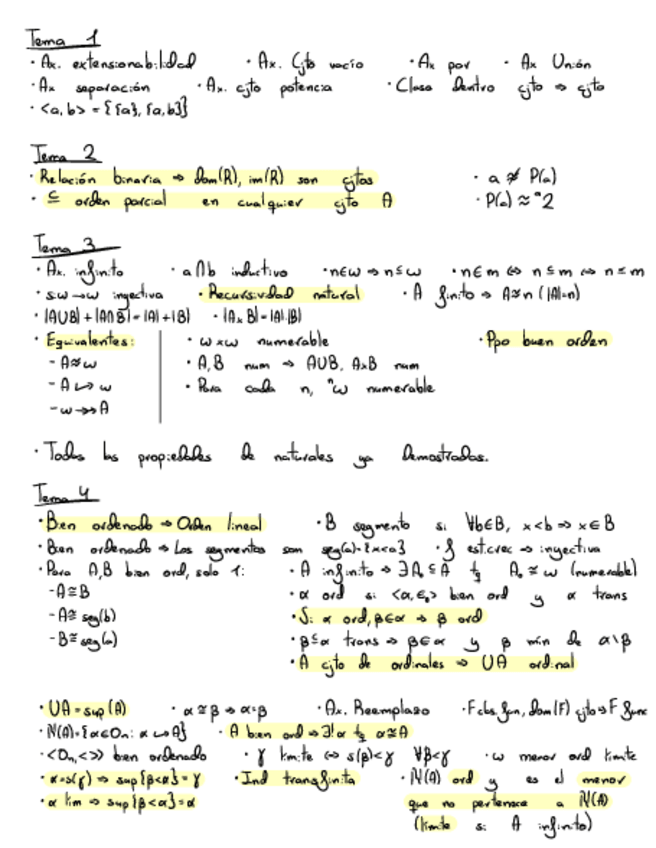 Tema 1
· Ax. extensionabilidad · Ax. Cjto vacío · Ax par · Ax Unión
· Ax separación · Ax. cjto potencia · Clase dentro cjto ⇒ cjto
· <a,b> = {{a}, {a,b}}
Tema 2
· Relación binaria ⇒ dom(R), im(R) son cjtos · a ≉ P(a)
· ⊆ orden parcial en cualquier cjto A · P(a) ≈ ᵃ2
Tema 3
· Ax. infinito · a∩b inductivo · n∈ω ⇒ n⊆ω · n∈m ⇔ n⊆m ⇔ n≤m
· s:ω→ω inyectiva · Recursividad natural · A finito ⇒ A≈n (|A|=n)
· |A∪B|+|A∩B|=|A|+|B| · |A×B|=|A|·|B|
· Equivalentes: · ω×ω numerable · Ppo buen orden
- A≈ω · A,B num ⇒ A∪B, A×B num
- A↪ω · Para cada n, ⁿω numerable
- ω↠A
· Todas las propiedades de naturales ya demostradas.
Tema 4
· Bien ordenado ⇒ Orden lineal · B segmento si ∀b∈B, x<b ⇒ x∈B
· Bien ordenado ⇒ Los segmentos son seg(a)={x<a} · f est.crec ⇒ inyectiva
· Para A,B bien ord, solo 1: · A infinito ⇒ ∃A₀⊆A tq A₀≅ω (numerable)
- A≅B · α ord si <α,∈> bien ord y α trans
- A≅seg(b) · Si α ord, β∈α ⇒ β ord
- B≅seg(a) · β⊆α trans ⇒ β∈α y β min de α\β
· A cjto de ordinales ⇒ ∪A ordinal
· ∪A=sup(A) · α≅β ⇒ α=β · Ax. Reemplazo · F cls.fun, dom(F) cjto ⇒ F func
· ℵ(A)={α∈On: α↪A} · A bien ord ⇒ ∃!α tq α≅A
· <On,<> bien ordenado · γ límite ⇔ s(β)<γ ∀β<γ · ω menor ord límite
· α=s(γ) ⇒ sup{β<α}=γ · Ind transfinita · ℵ(A) ord y es el menor
· α lim ⇒ sup{β<α}=α que no pertenece a ℵ(A)
(límite si A infinito)